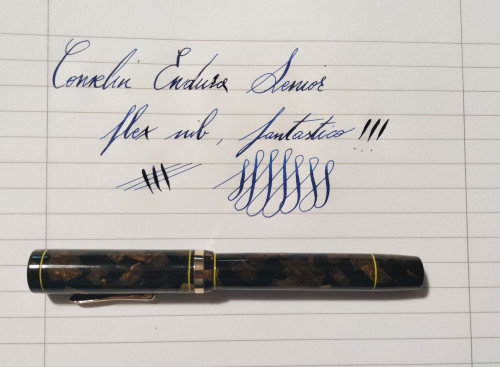 Conklin Endura Senior
flex nib, fantastico!!!